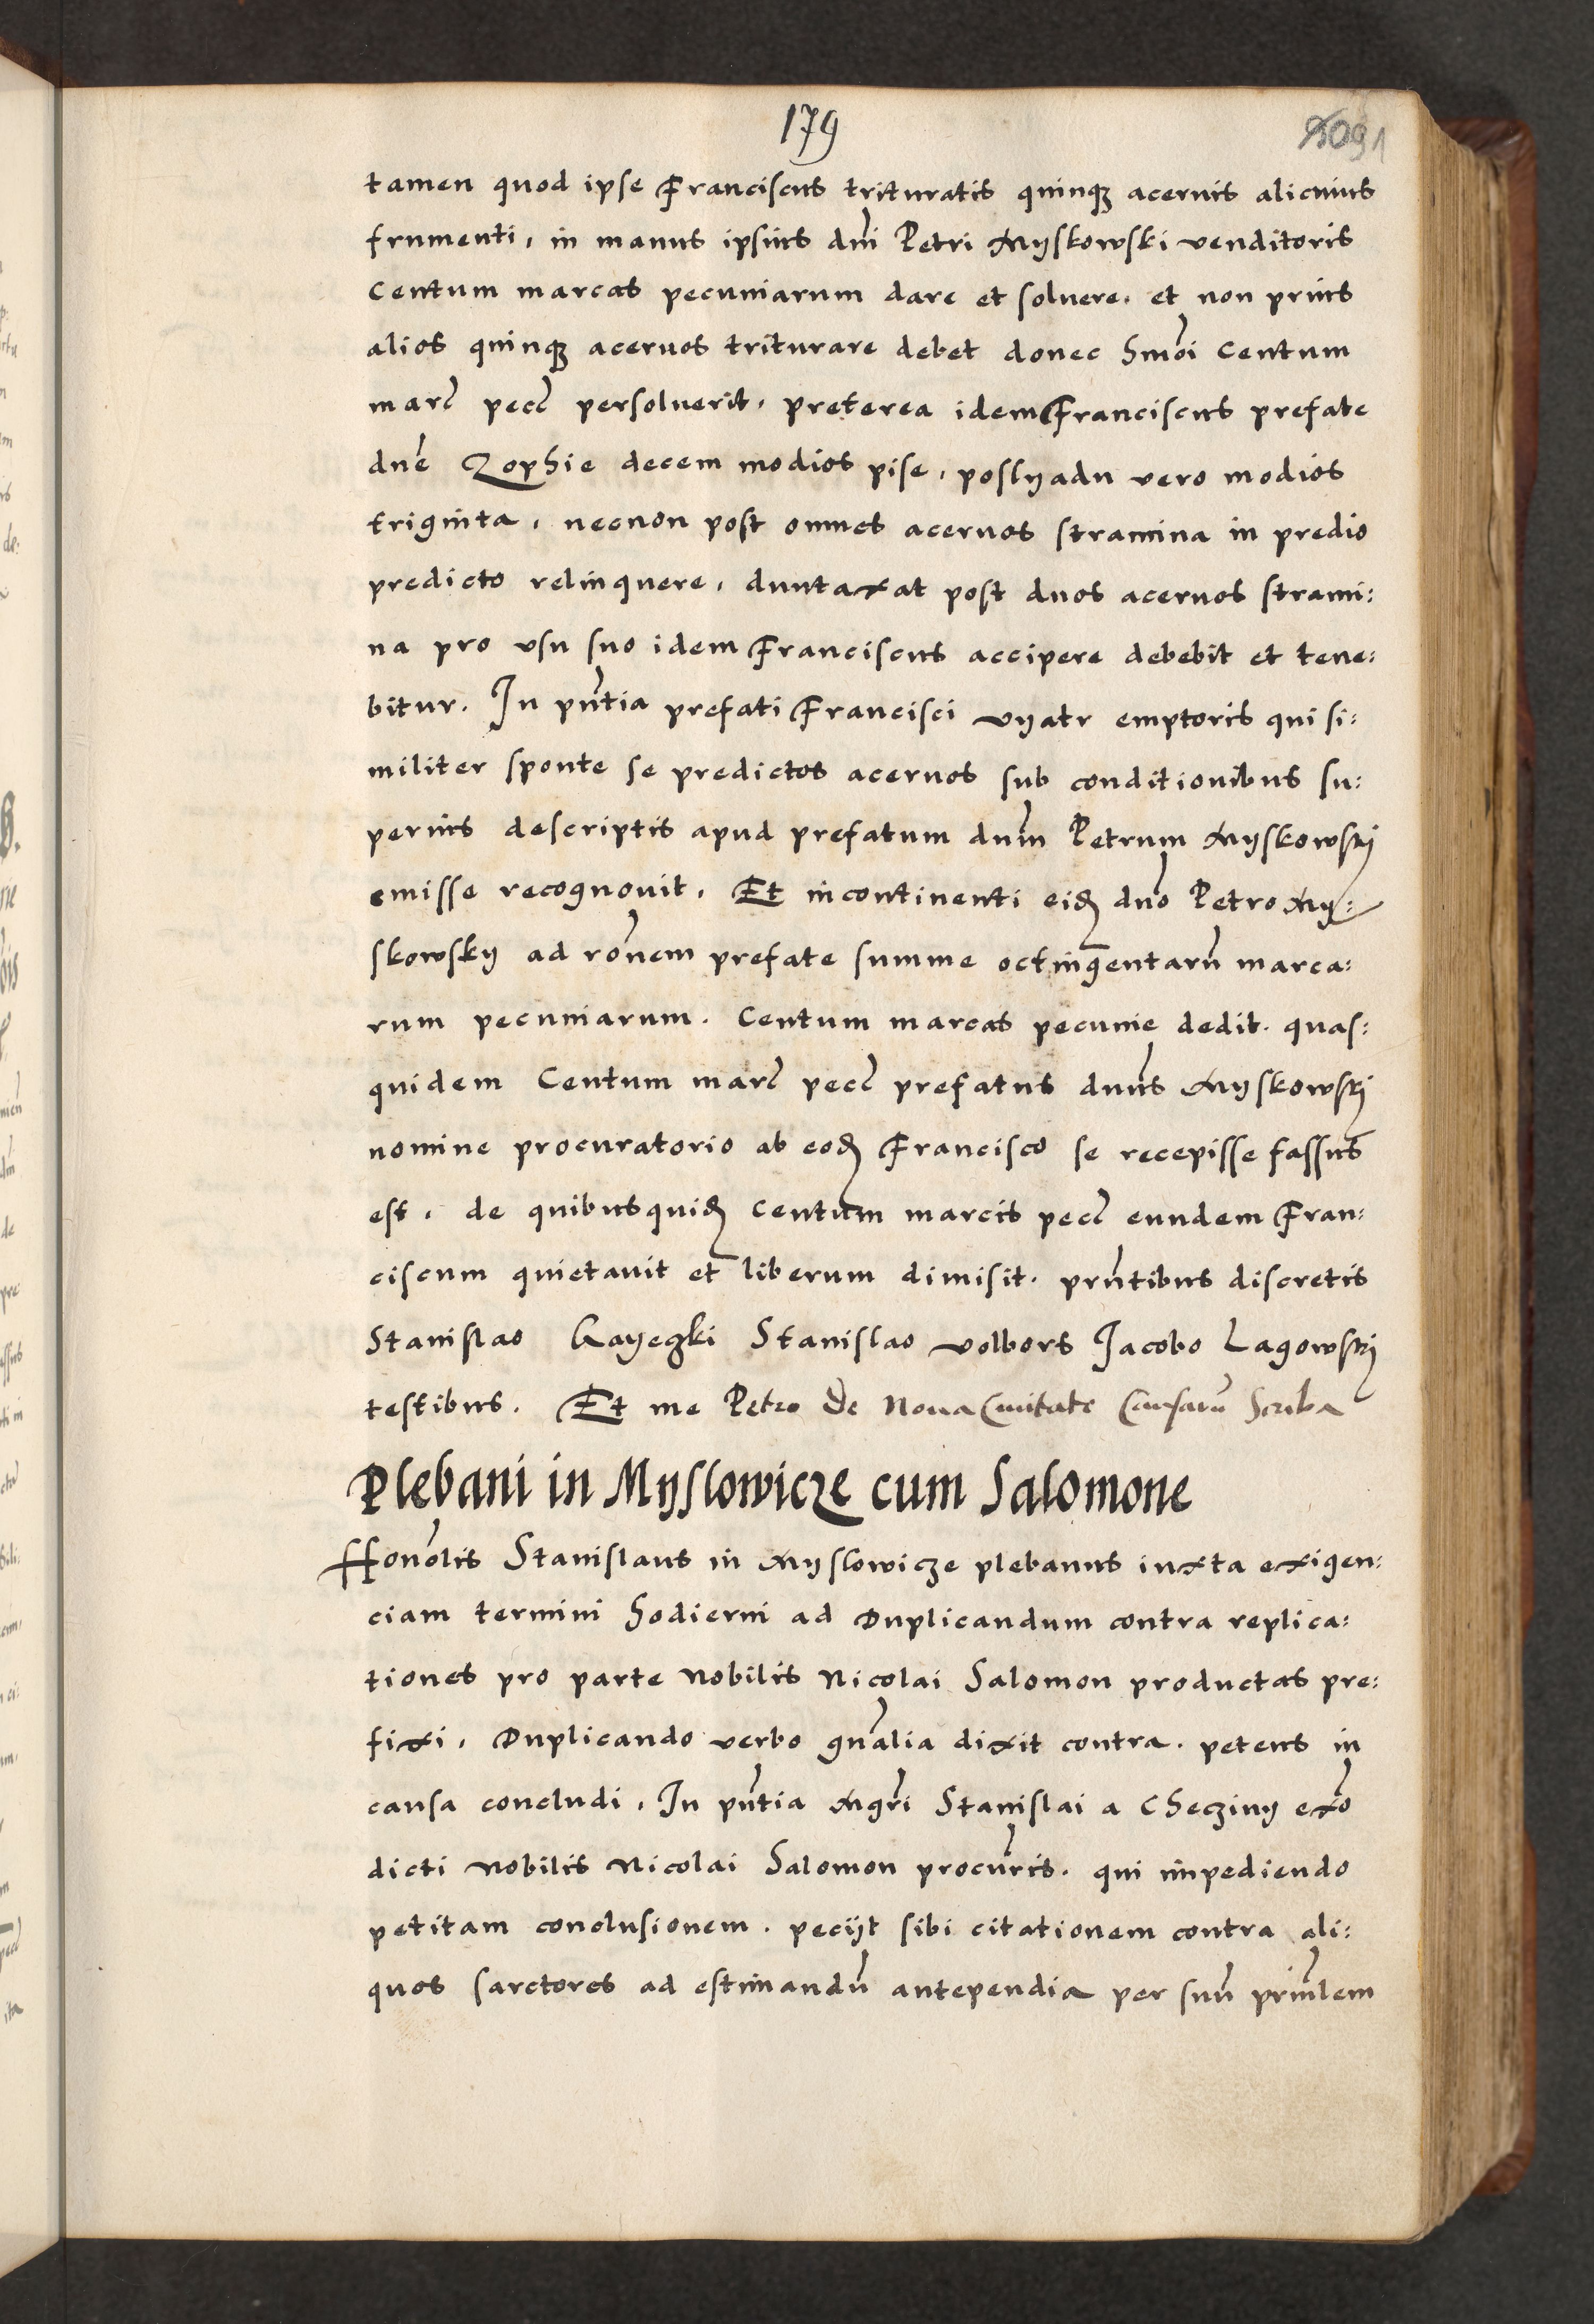 179
tamen quod ipse Franciscus trituratis quinqꝫ acervis alicuius
frumenti, in manus ipsius dni Petri Myskowski venditoris
Centum marcas pecuniarum dare et solvere. et non prius
alios quinqꝫ acervos triturare debet donec hmõi Centum
marc pecc persolverit. preterea idem Franciscus prefate
dne Zophie decem modios pise, poslyadu vero modios
triginta, necnon post omnes acervos stramina in predio
predicto relinquere, duntaxat post duos acervos strami:
na pro usu suo idem Franciscus accipere debebit et tene:
bitur. In pñtia prefati Francisci vyatr emptoris qui si:
militer sponte se predictos acervos sub conditionibus su:
perius descriptis apud prefatum dnm Petrum Myskowskj
emisse recognovit. Et incontinenti eidꝫ dno Petro My:
skowsky ad ronem prefate summe octingentarũ marca:
rum pecuniarum. Centum marcas pecunie dedit. quas:
quidem Centum marc pecc prefatus dnus Myskowskj
nomine procuratorio ab eodꝫ Francisco se recepisse fassus
est, de quibusquidꝫ Centum marcis pecc eundem Fran:
ciscum quietavit et liberum dimisit. prntibus discretis
Stanislao Kayeczki Stanislao volbors Jacobo Lagowskj
testibus. Et me Petro de Nova Civitate Causarũ Scriba
Plebani in Myslowicze cum Salomone
Honolis Stanislaus in Myslowicze plebanus iuxta exigen:
ciam termini hodierni ad Duplicandum contra replica:
tiones pro parte Nobilis Nicolai Salomon productas pre:
fixi, Duplicando verbo gnalia dixit contra. petens in
causa concludi, In pñtia Mgri Stanislai a Checziny exo
dicti Nobilis Nicolai Salomon procuris. qui impediendo
petitam conclusionem. peciit sibi citationem contra ali:
quos sarctores ad estimandũ antependia per suũ prinlem